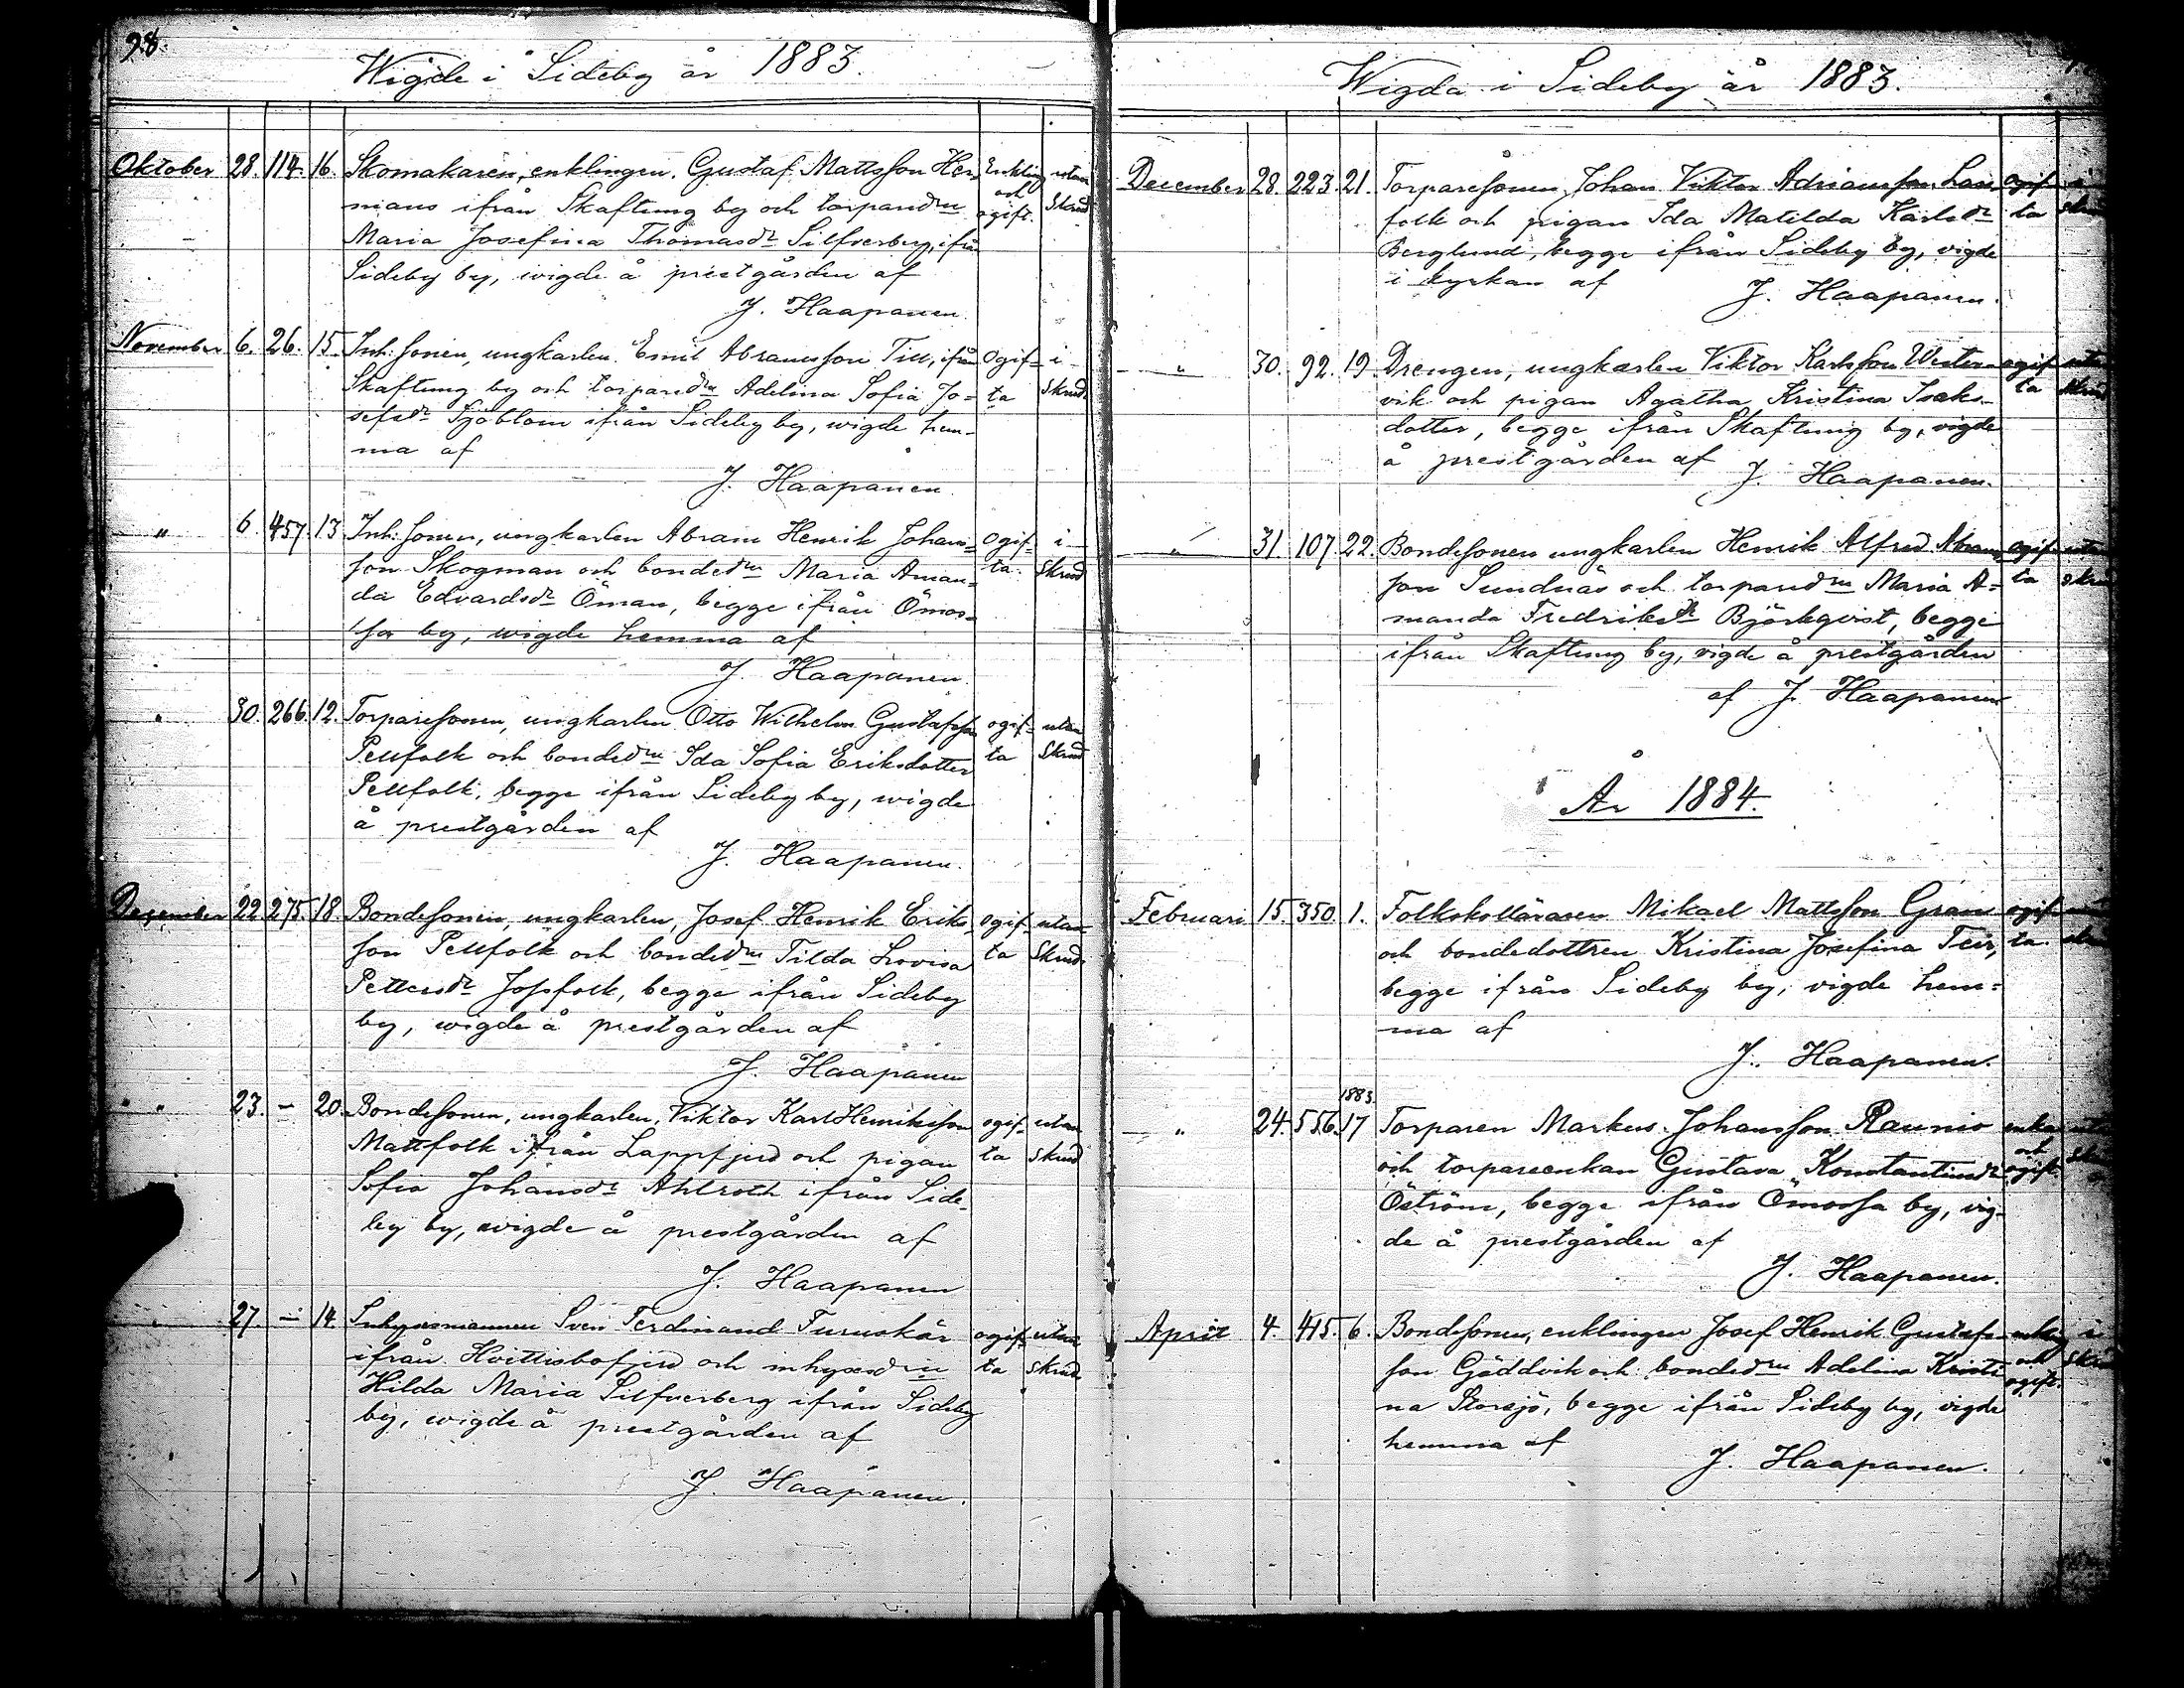 98.
Wigde i Sideby år 1883.
Oktober 28. 114. 16. Skomakaren, enklingen, Gustaf Mattsson Her- Enkling utan
mans ifrån Skaftung by och torparedrn och ogift. Skrud
Maria Josefina Thomasdr Silfverberg, ifrån
Sideby by, wigde å prestgården af
J. Haapanen.
November 6. 26. 15. Inh: sonen, ungkarlen Emil Abramsson Till, ifrån Ogif- i
Skaftung by och torparedrn Adelina Sofia Jo= ta Skrud.
sefsdr Sjöblom ifrån Sideby by, wigde hem-
ma af
J. Haapanen.
" 6. 457. 13 Inh: sonen, ungkarlen Abram Henrik Johans= Ogif= i
son Skogman och bondedrn Maria Aman= ta. Skrud
da Edvardsdr Öman, begge ifrån Ömos=
sa by, wigde hemma af
J. Haapanen.
" 30. 266. 12. Torparesonen, ungkarlen Otto Wilhelm Gustafsson ogif= utan
Pellfolk och bondedrn Ida Sofia Eriksdotter ta Skrud
Pellfolk, begge ifrån Sideby by, wigde
å prestgården af
J. Haapanen.
December 22 275. 18. Bondesonen, ungkarlen, Josef Henrik Eriks- ogif- utan
son Pellfolk och bondedrn Tilda Lovisa ta Skrud.
Pettersdr Jossfolk, begge ifrån Sideby
by, wigde å prestgården af
J. Haapanen
" 23. – 20. Bondesonen, ungkarlen, Viktor Karl Henriksson ogif- utan
Mattfolk ifrån Lappfjerd och pigan ta skrud
Sofia Johansdr Ahlroth ifrån Side-
by by, wigde å prestgården af
J. Haapanen
" 27. – 14. Inhysesmannen Sven Ferdinand Furuskär ogif= utan
ifrån Hvittisbofjerd och inhysesdrn ta skrud.
Hilda Maria Silfverberg ifrån Sideby
by, wigde å prestgården af
J. Haapanen.
Wigda i Sideby år 1883.
December 28. 223. 21. Torparesonen, Johan Viktor Adriansson Lass- ogif- i
folk och pigan Ida Matilda Karlsdr ta skrud
Berglund, begge ifrån Sideby by, vigde
i kyrkan af J. Haapanen.
" 30. 92. 19. Drengen, ungkarlen Viktor Karlsson Wester- ogif- utan
vik och pigan Agatha Kristina Isaks- ta skrud
dotter, begge ifrån Skaftung by, vigde
å prestgården af J. Haapanen.
" 31. 107. 22. Bondesonen ungkarlen Henrik Alfred Abrams- ogif- utan
son Sundnäs och torparedrn Maria A= ta skrud
manda Fredriksdr Björkqvist, begge
ifrån Skaftung by, vigde å prestgården
af J. Haapanen
År 1884.
Februari 15. 350. 1. Folkskolläraren Mikael Mattsson Gran ogif-
och bondedottren Kristina Josefina Teir, ta.
begge ifrån Sideby by, vigde hem=
ma af
J. Haapanen.
1883.
" 24. 556. 17 Torparen Markus Johansson Raunio
och torpareenkan Gustava Konstantinsdr och ogift.
Öström, begge ifrån Ömossa by, vig-
de å prestgården af
J. Haapanen.
April 4. 415. 6. Bondesonen, enklingen Josef Henrik Gustafs- enkling i
son Gäddvik och bondedrn Adelina Kristi- och ogift. Skrud
na Storsjö, begge ifrån Sideby by, vigde
hemma af
J. Haapanen.